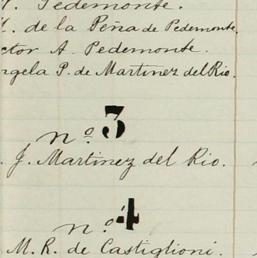 Pedemonte.
de la Peña de Pedemonte.
ctor A. Pedemonte.
ngela P. de Martinez del Rio.
nº 3
J. Martinez del Rio.
nº 4
M. R. de Castiglioni.